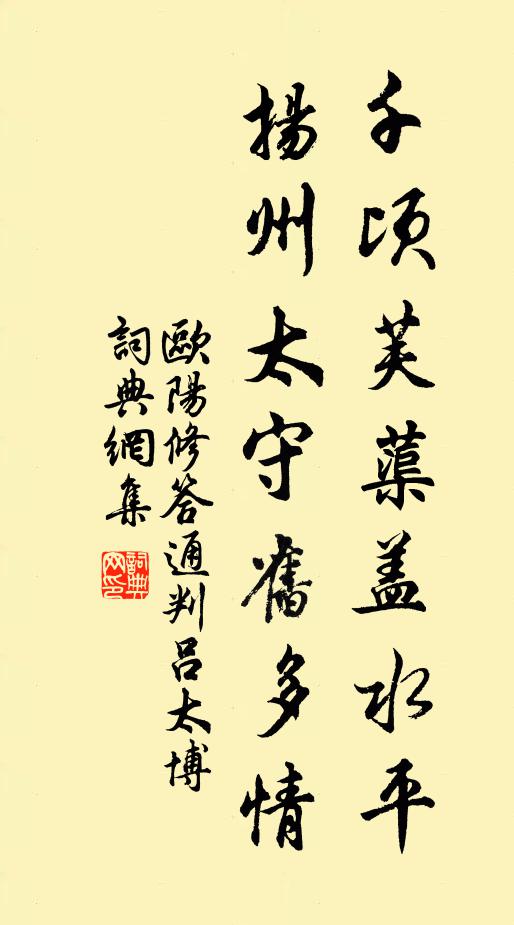 千頃芙蕖盖水平
揚州太守舊多情
歐陽修答通判呂太博
詞典網集
詞典
网印